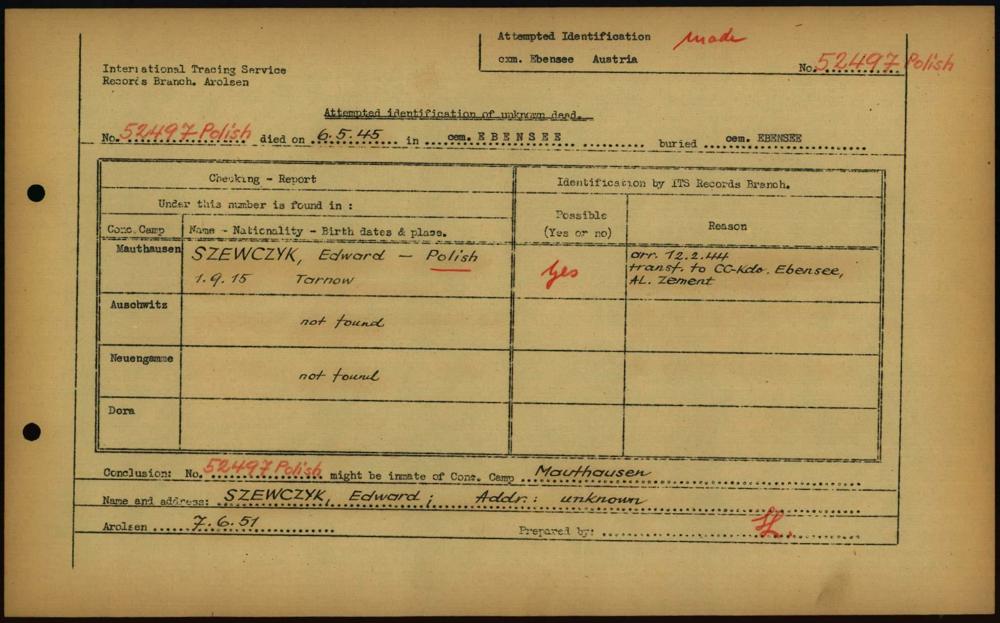 Attempted Identification made
cxm. Ebensee Austria
No. 52497 Polish
International Tracing Service
Records Branch. Arolsen
Attempted identification of unknown dead.
No. 52497 Polish died on 6.5.45 in cem. EBENSEE buried cem. EBENSEE
Checking - Report
Identification by ITS Records Branch.
Under this number is found in :
Possible
(Yes or no)
Reason
Conc. Camp Name - Nationality - Birth dates & place.
Mauthausen SZEWCZYK, Edward - Polish
1.9.15 Tarnow
Yes
arr. 12.2.44
transf. to CC-Kdo. Ebensee,
AL. Zement
Auschwitz
not found
Neuengamme
not found
Dora
Conclusion: No. 52497 Polish might be inmate of Conc. Camp Mauthausen
Name and address: SZEWCZYK, Edward ; Addr.: unknown
Arolsen 7.6.51 Prepared by: